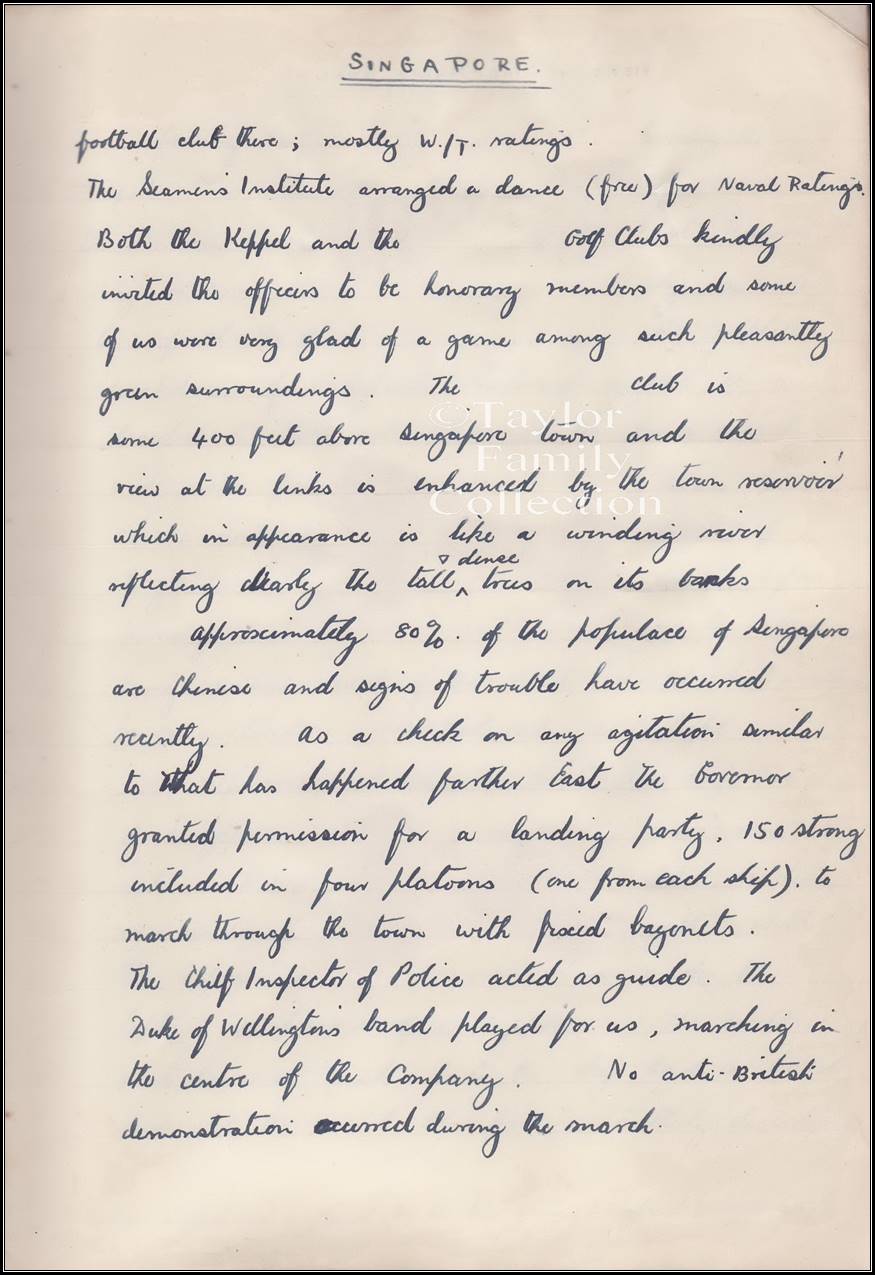 SINGAPORE.
football club there ; mostly W./T. ratings .
The Seamen's Institute arranged a dance (free) for Naval Ratings.
Both the Keppel and the Golf Clubs kindly
invited the officers to be honorary members and some
of us were very glad of a game among such pleasantly
green surroundings . The club is
some 400 feet above Singapore town and the
view at the links is enhanced by the town reservoir
which in appearance is like a winding river
& dense
reflecting clearly the tall ^ trees on its banks
Approximately 80%. of the populace of Singapore
are Chinese and signs of trouble have occurred
recently . As a check on any agitation similar
to that has happened farther East the Governor
granted permission for a landing party, 150 strong
included in four platoons (one from each ship). to
march through the town with fixed bayonets .
The Chief Inspector of Police acted as guide . The
Duke of Wellington's band played for us , marching in
the centre of the Company . No anti-British
demonstration occurred during the march.
©Taylor
Family
Collection